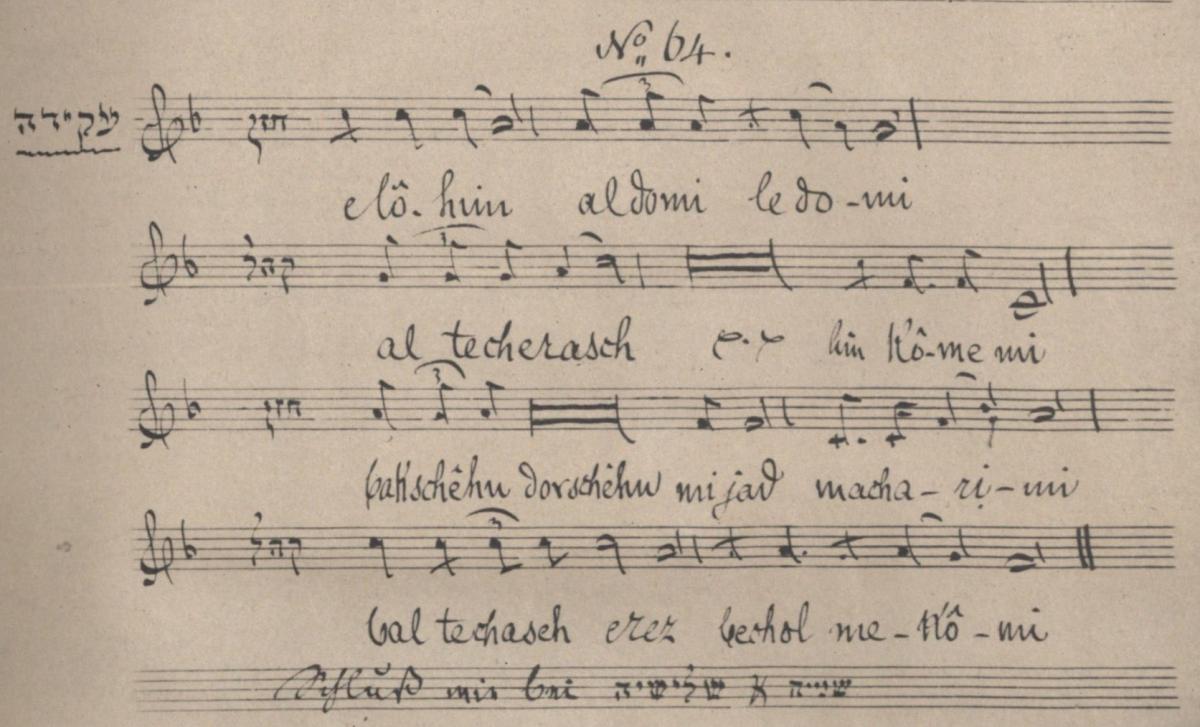 No 64.
עקידה חזן
elô-him al domi ledo-mi
קהל
al techerasch hin kô-me mi
חזן
bakschêhu dorschêhu mijad macha-ri-mi
קהל
bal techasch erez bechol me-kô-mi
Schluß wie bei שנייה א שלישיה